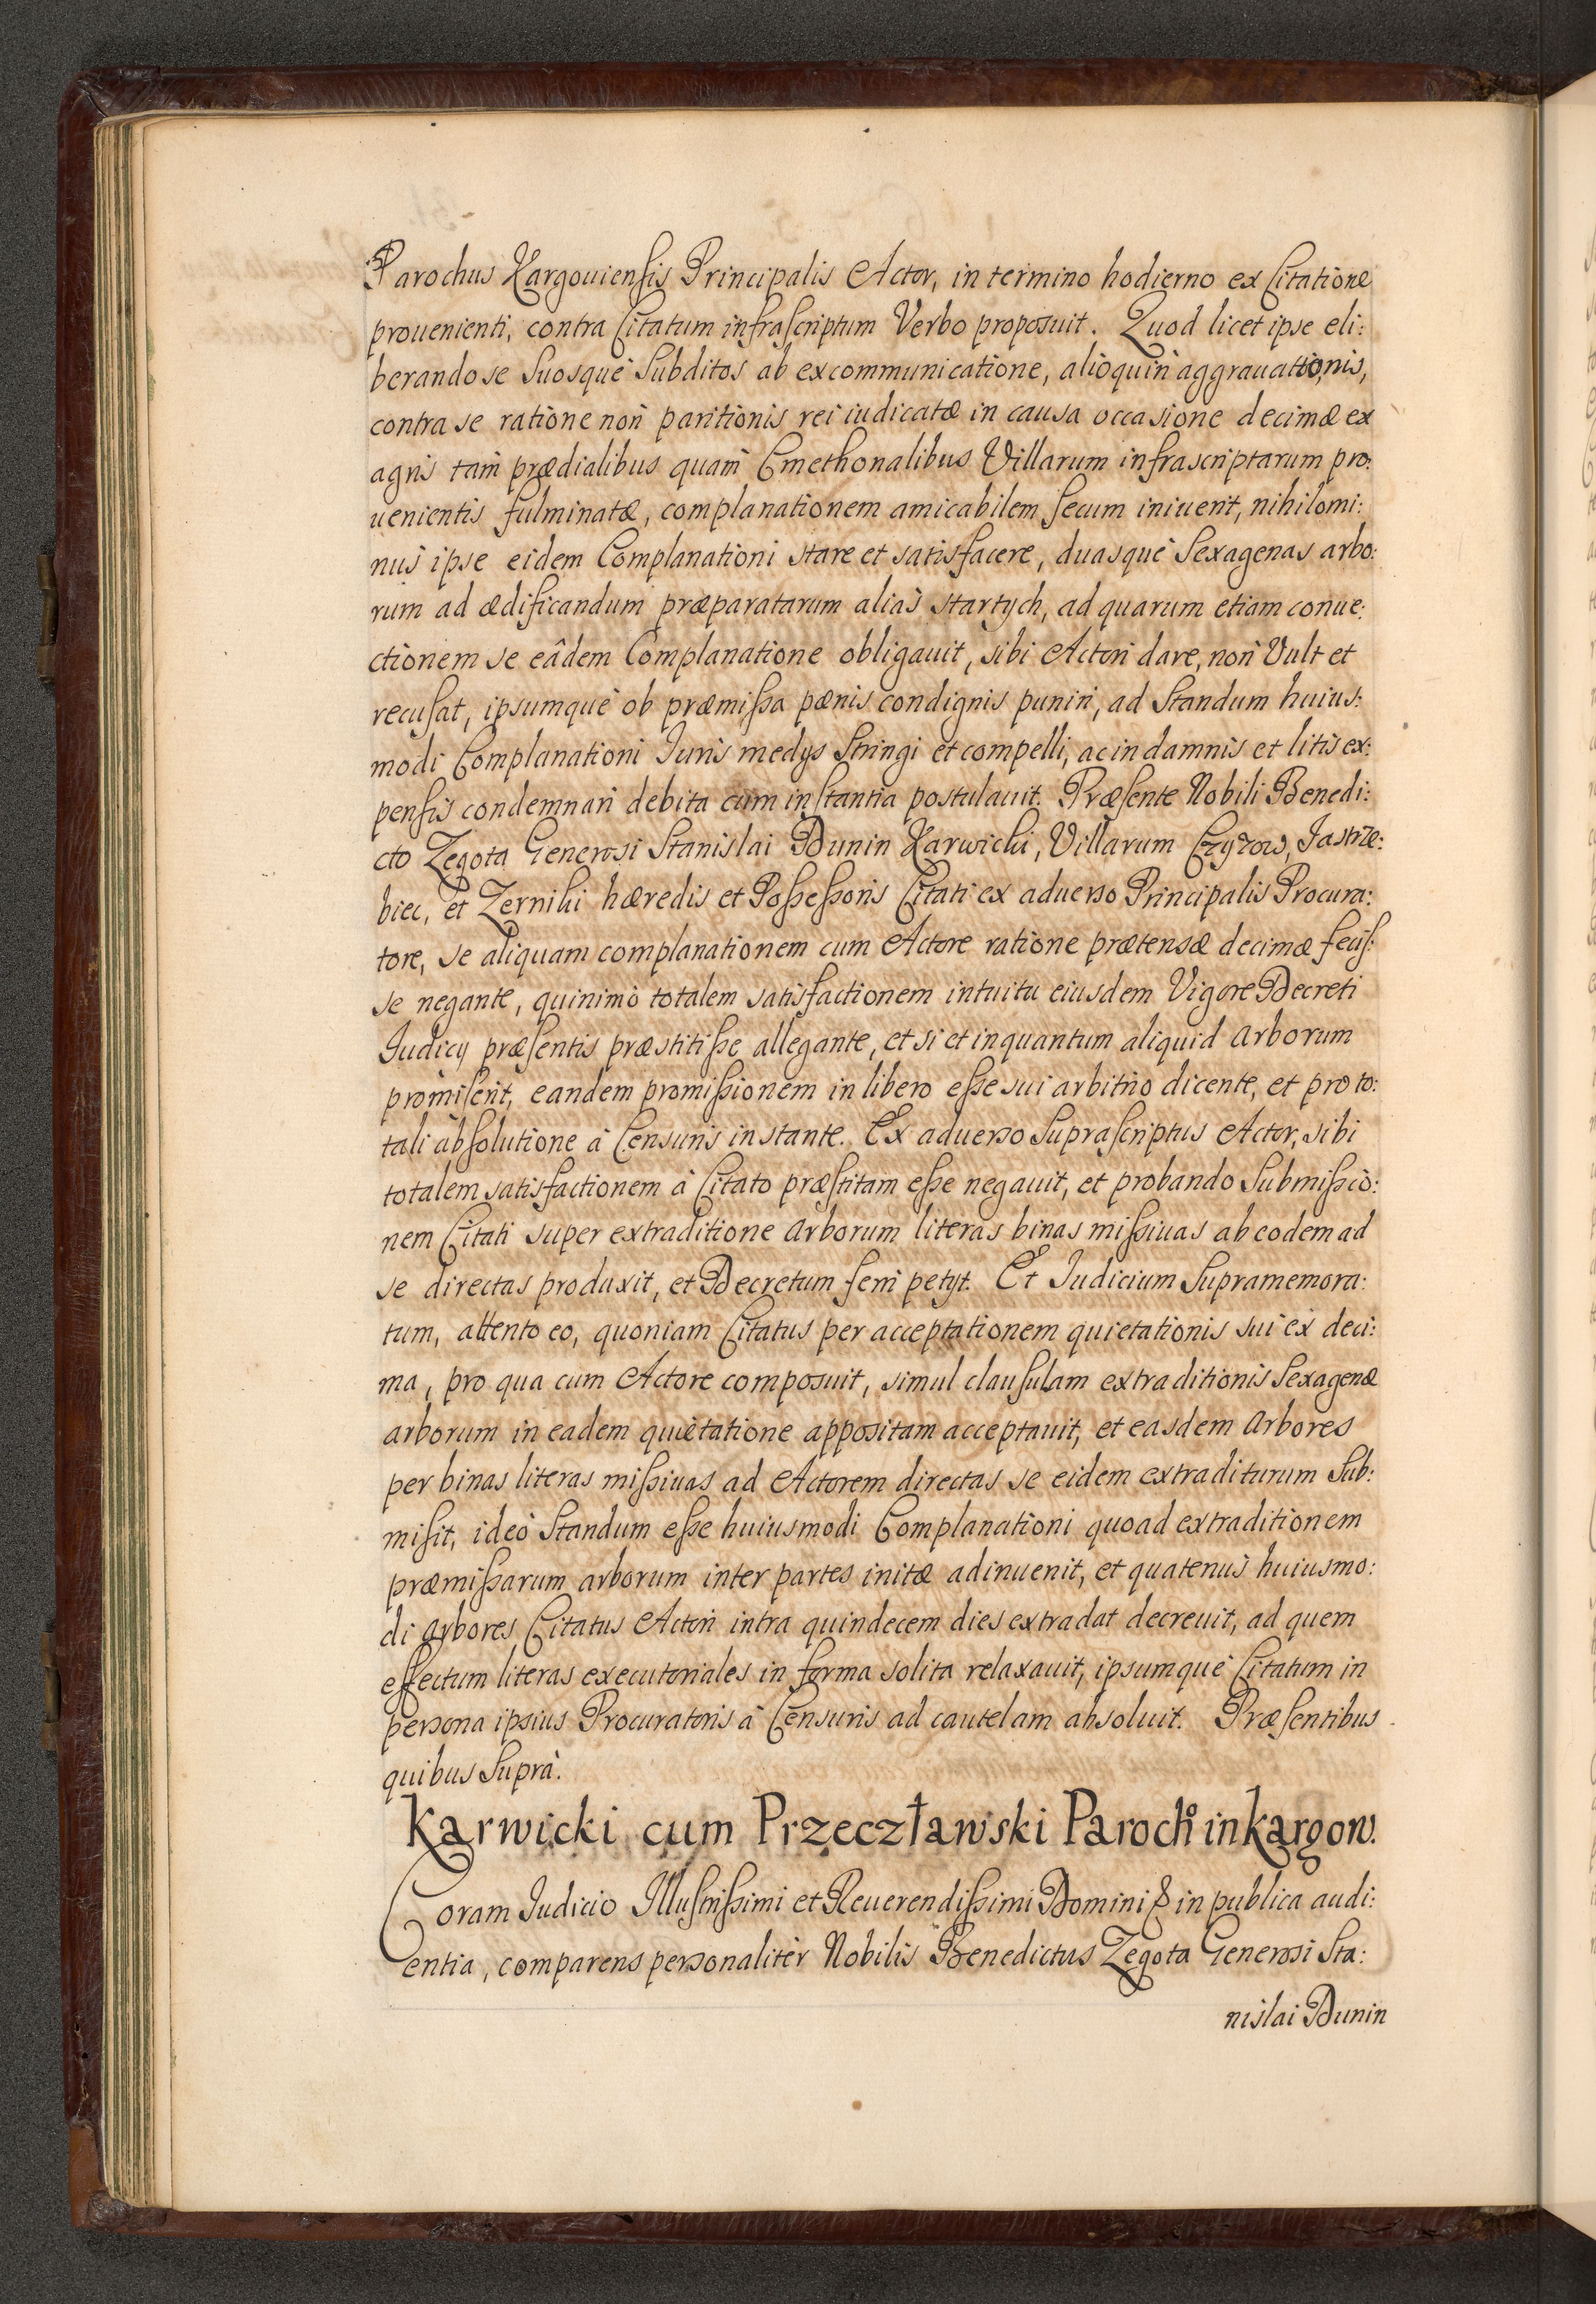 Parochus Kargouiensis Principalis Actor, in termino hodierno ex Citatione
prouenienti, contra Citatum infrascriptum Verbo proposuit. Quod licet ipse eli:
berando se Suosque Subditos ab excommunicatione, alioquin aggrauationis,
contra se ratione non paritionis rei iudicatæ in causa occasione decimæ ex
agris tam prædialibus quam Cmethonalibus Villarum infrascriptarum pro:
uenientis fulminatæ, complanationem amicabilem secum iniuerit, nihilomi:
nus ipse eidem Complanationi stare et satisfacere, duasque Sexagenas arbo:
rum ad ædificandum præparatarum alias startych, ad quarum etiam conue:
ctionem se eâdem Complanatione obligauit, sibi Actori dare, non Vult et
recusat, ipsumque ob præmissa pænis condignis puniri, ad Standum huius:
modi Complanationi Iuris medys Stringi et compelli, ac in damnis et litis ex:
pensis condemnari debita cum instantia postulauit. Præsente Nobili Benedi:
cto Zegota Generosi Stanislai Dunin Karwicki, Villarum Czyżow, Jastrzę:
biec, et Zerniki hæredis et Possessoris Citati ex aduerso Principalis Procura:
tore, se aliquam complanationem cum Actore ratione prætensæ decimæ fecis:
se negante, quinimo totalem satisfactionem intuitu eiusdem Vigore Decreti
Iudicy præsentis præstitisse allegante, et si et inquantum aliquid Arborum
promiserit, eandem promissionem in libero esse sui arbitrio dicente, et pro to:
tali absolutione à Censuris instante. Ex aduerso Suprascriptus Actor, sibi
totalem satisfactionem à Citato præstitam esse negauit, et probando Submissio:
nem Citati super extraditione Arborum literas binas missiuas ab eodem ad
se directas produxit, et Decretum ferri petyt. Et Iudicium Supramemora:
tum, attento eo, quoniam Citatus per acceptationem quietationis sui ex deci:
ma, pro qua cum Actore composuit, simul clausulam extraditionis Sexagenæ
arborum in eadem quietatione appositam acceptauit, et easdem Arbores
per binas literas missiuas ad Actorem directas se eidem extraditurum Sub:
misit, ideò Standum esse huiusmodi Complanationi quoad extraditionem
præmissarum arborum inter partes initæ adinuenit, et quatenus huiusmo:
di Arbores Citatus Actori intra quindecem dies extradat decreuit, ad quem
effectum literas executoriales in forma solita relaxauit, ipsumque Citatum in
persona ipsius Procuratoris à Censuris ad cautelam absoluit. Præsentibus
quibus Suprà.
Karwicki cum Przeczławski Paroch° in Kargow.
Coram Iudicio Illustrissimi et Reuerendissimi Domini & in publica audi:
entia, comparens personaliter Nobilis Benedictus Zegota Generosi Sta:
nislai Dunin